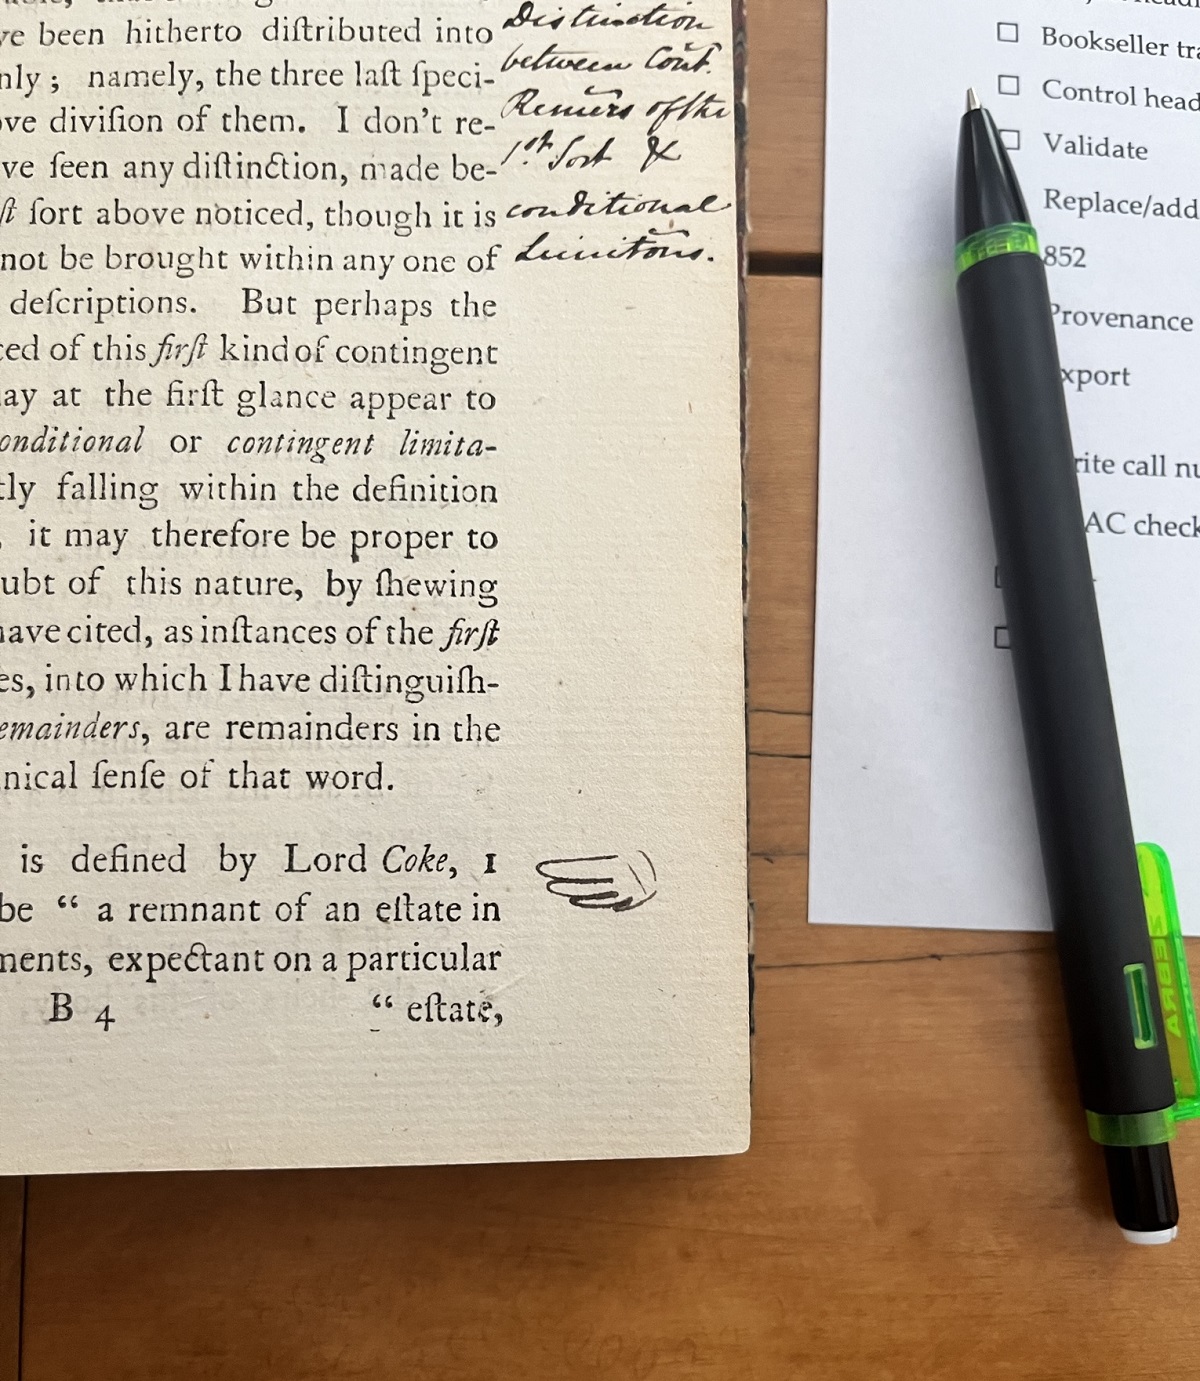 ve been hitherto diſtributed into
nly ; namely, the three laſt ſpeci-
ove diviſion of them. I don't re-
ve ſeen any diſtinction, made be-
ſt ſort above noticed, though it is
not be brought within any one of
deſcriptions. But perhaps the
ced of this firſt kind of contingent
ay at the firſt glance appear to
onditional or contingent limita-
tly falling within the definition
, it may therefore be proper to
ubt of this nature, by ſhewing
have cited, as inſtances of the firſt
es, into which I have diſtinguiſh-
emainders, are remainders in the
nical ſenſe of that word.
is defined by Lord Coke, 1
be “ a remnant of an eſtate in
ments, expectant on a particular
B 4 “ eſtate,
Distinction
between Cont.
Remrs of the
1.st Sort &
conditional
Limitons.
Bookseller tra
Control head
Validate
Replace/add
852
Provenance
xport
rite call nu
AC check
ZEBRA